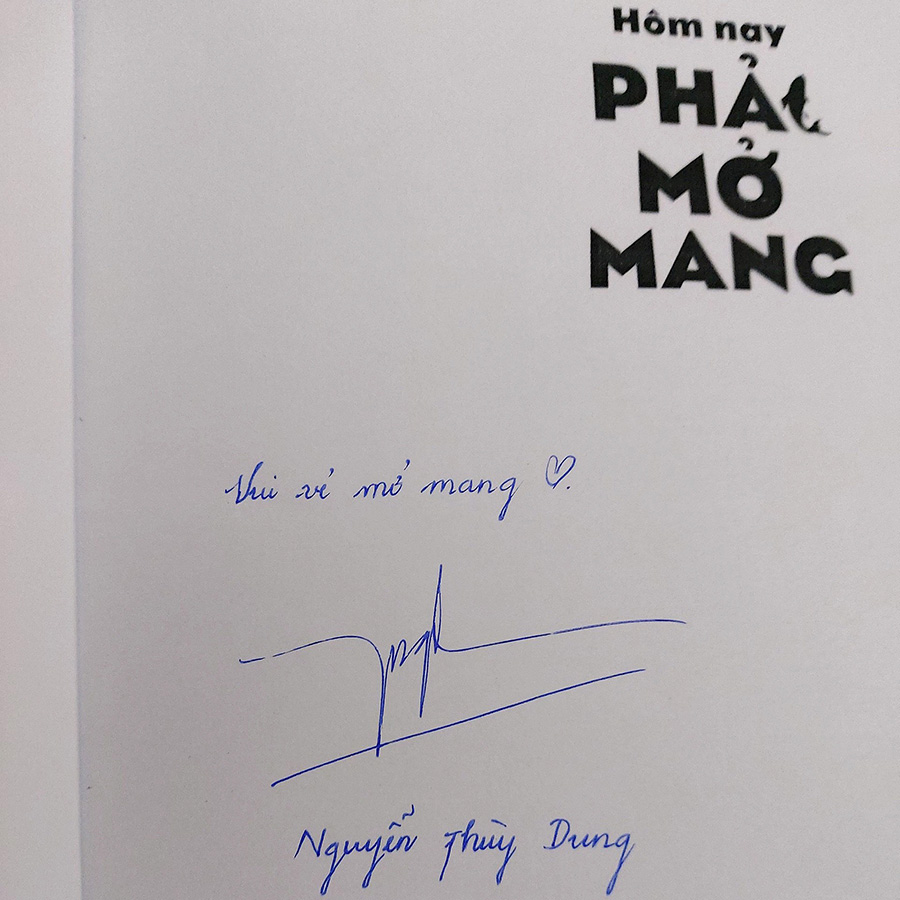 Hôm nay
PHẢI
MỞ
MANG
Vui vẻ mở mang ♡.
Nguyễn Thùy Dung